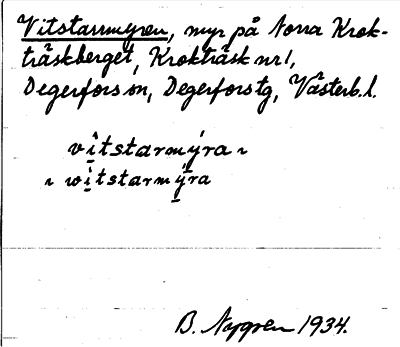 Vitstarrmyren, myr på Norra Krok-
träskberget, Krokträsk nr 1,
Degerfors sn, Degerfors tg, Västerb. l.
vi̠tstarmýra
i wi̠tstarmy̠̆ra
B. Nygren 1934.